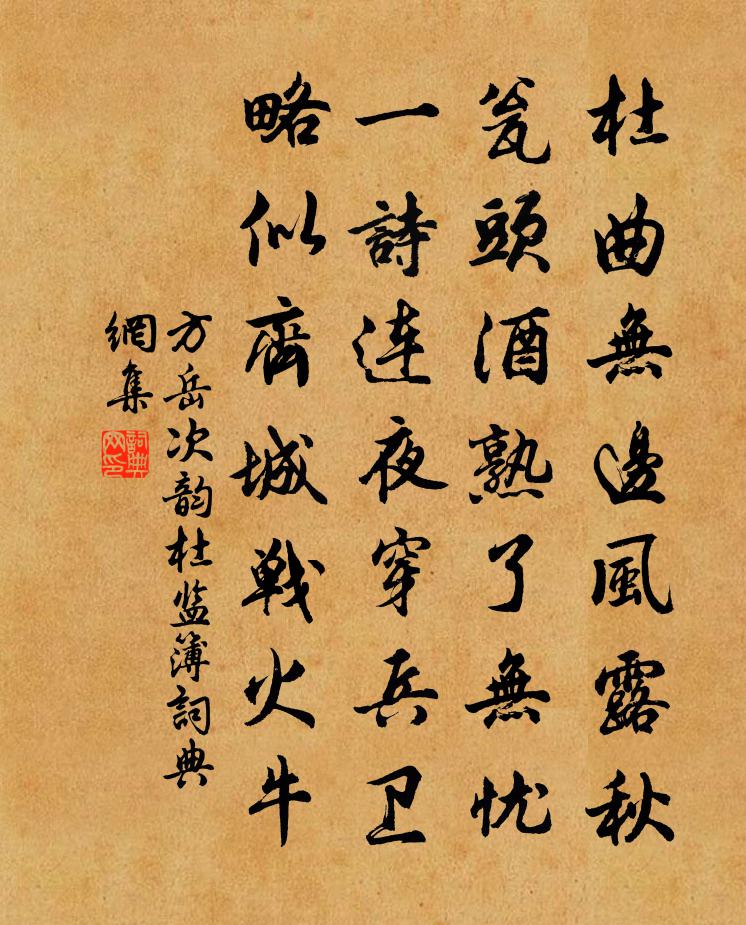 杜曲無邊風露秋
瓮頭酒熟了無忧
一詩連夜穿兵卫
略似齊城戰火牛
方岳次韵杜监簿詞典
網集
詞典
网印